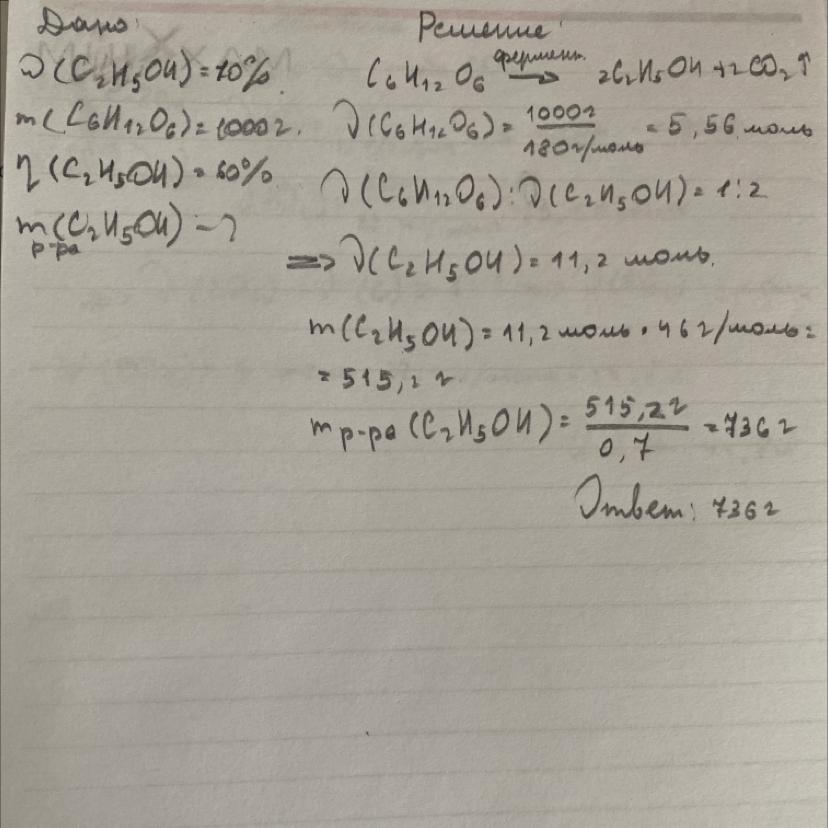 Дано:
ω(C₂H₅OH)=70%.
m(C₆H₁₂O₆)=1000г.
η(C₂H₅OH)=80%
m р-ра (C₂H₅OH) - ?
Решение:
C₆H₁₂O₆ фермент. → 2C₂H₅OH + 2CO₂↑
ν(C₆H₁₂O₆) = 1000г / 180г/моль = 5,56 моль
ν(C₆H₁₂O₆):ν(C₂H₅OH) = 1:2
=> ν(C₂H₅OH) = 11,2 моль.
m(C₂H₅OH) = 11,2 моль · 46 г/моль =
= 515,2 г
m р-ра (C₂H₅OH) = 515,2г / 0,7 = 736г
Ответ: 736г